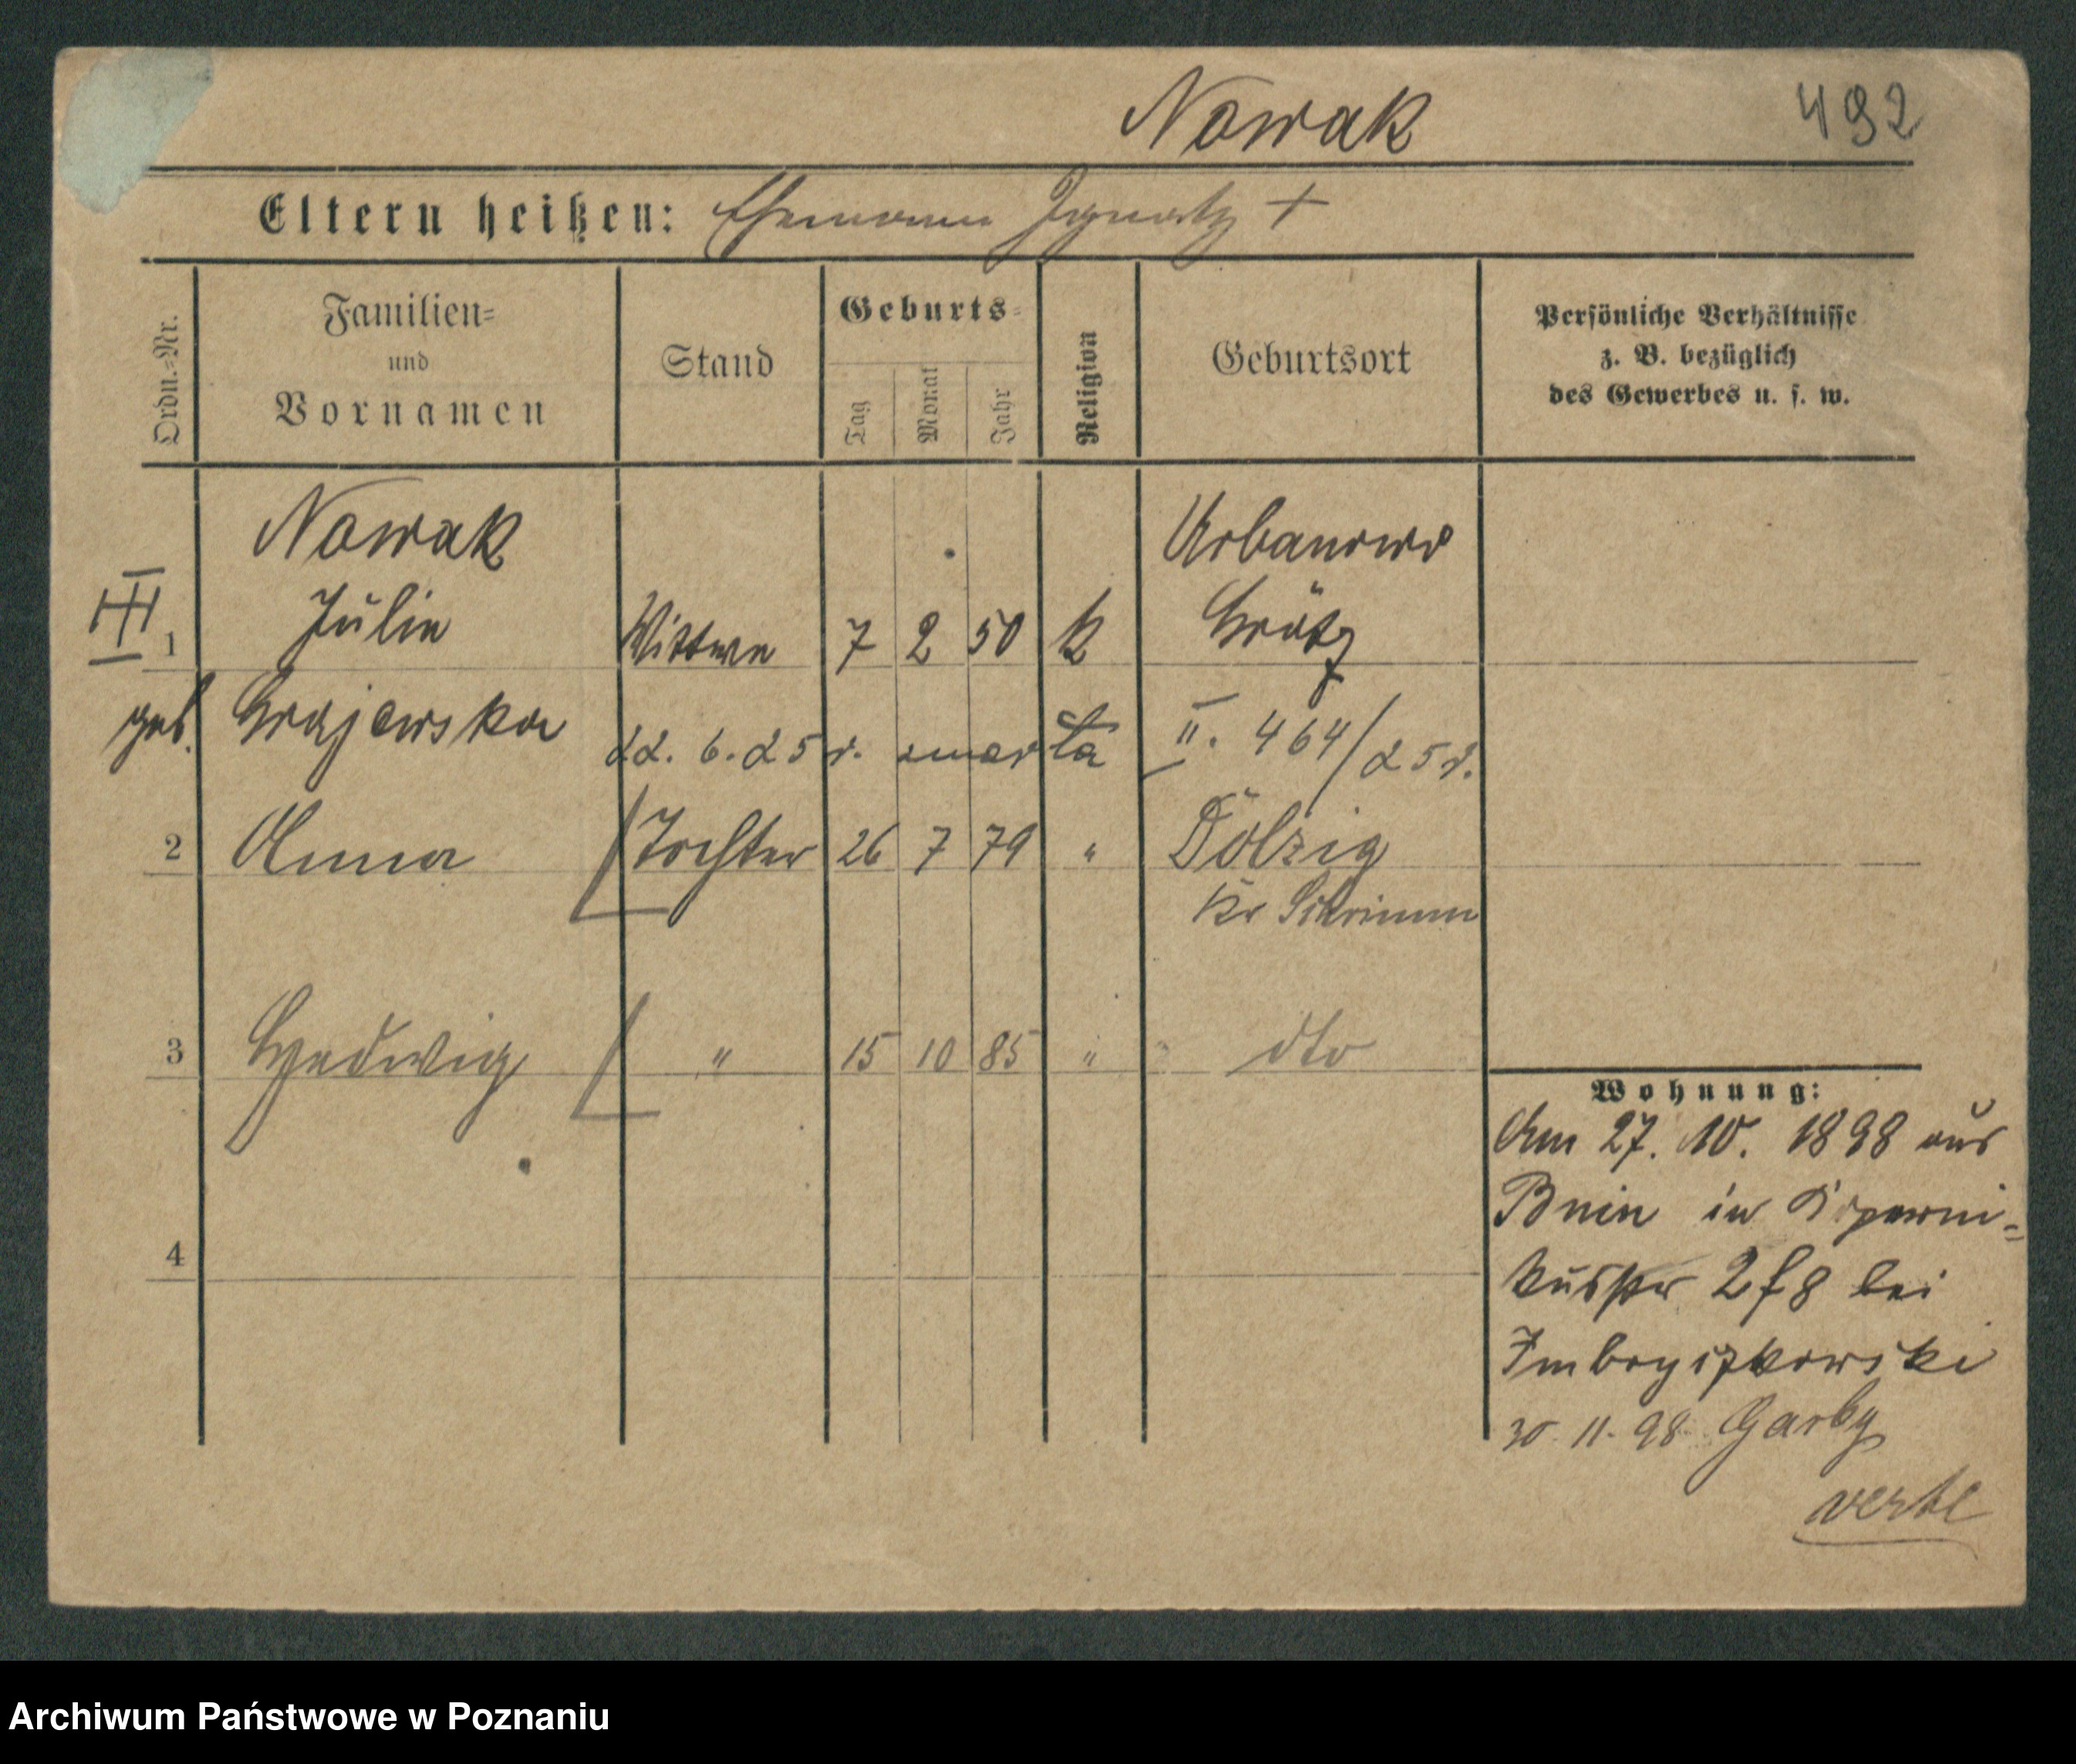 Nowak 492
Eltern heißen: Ehemann Ignatz +
Ordn.-Nr.
Familien-
und
Vornamen
Stand
Geburts-
Tag
Monat
Jahr
Religion
Geburtsort
Persönliche Verhältnisse
z. B. bezüglich
des Gewerbes u. s. w.
Nowak Urbanowo
III 1 Julie Wittwe 7 2 50 k Grätz
geb. Grajewska 22. 6. 25 r. zmarła II. 464/25 r.
2 Anna Tochter 26 7 79 " Dolzig
Kr Schrimm
3 Hedwig " 15 10 85 " dto
4
Wohnung:
Am 27. 10. 1898 aus
Bnin in Koperni-
kusstr 2 f 8 bei
Imbryszkowski
30. 11. 98 Garby
verte
Archiwum Państwowe w Poznaniu